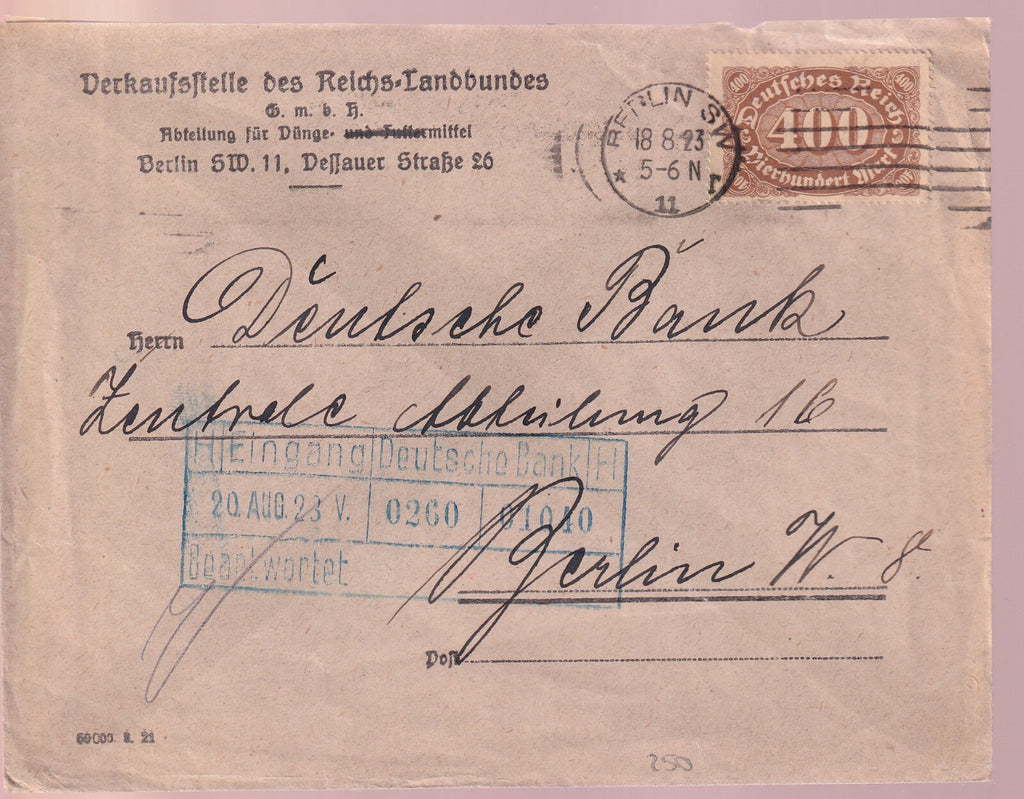 Verkaufsstelle des Reichs-Landbundes
G. m. b. H.
Abteilung für Dünge- und Futtermittel
Berlin SW. 11, Dessauer Straße 26
BERLIN SW
18 8 23
5-6 N
* r
11
400 400
Deutsches Reich
400
Vierhundert Mark
400 400
Herrn Deutsche Bank
Zentrale Abteilung 16
H Eingang Deutsche Bank H
20. AUG. 23 V. 0260 01040
Beantwortet
Berlin W. 8.
Post
60000. 8. 21
250